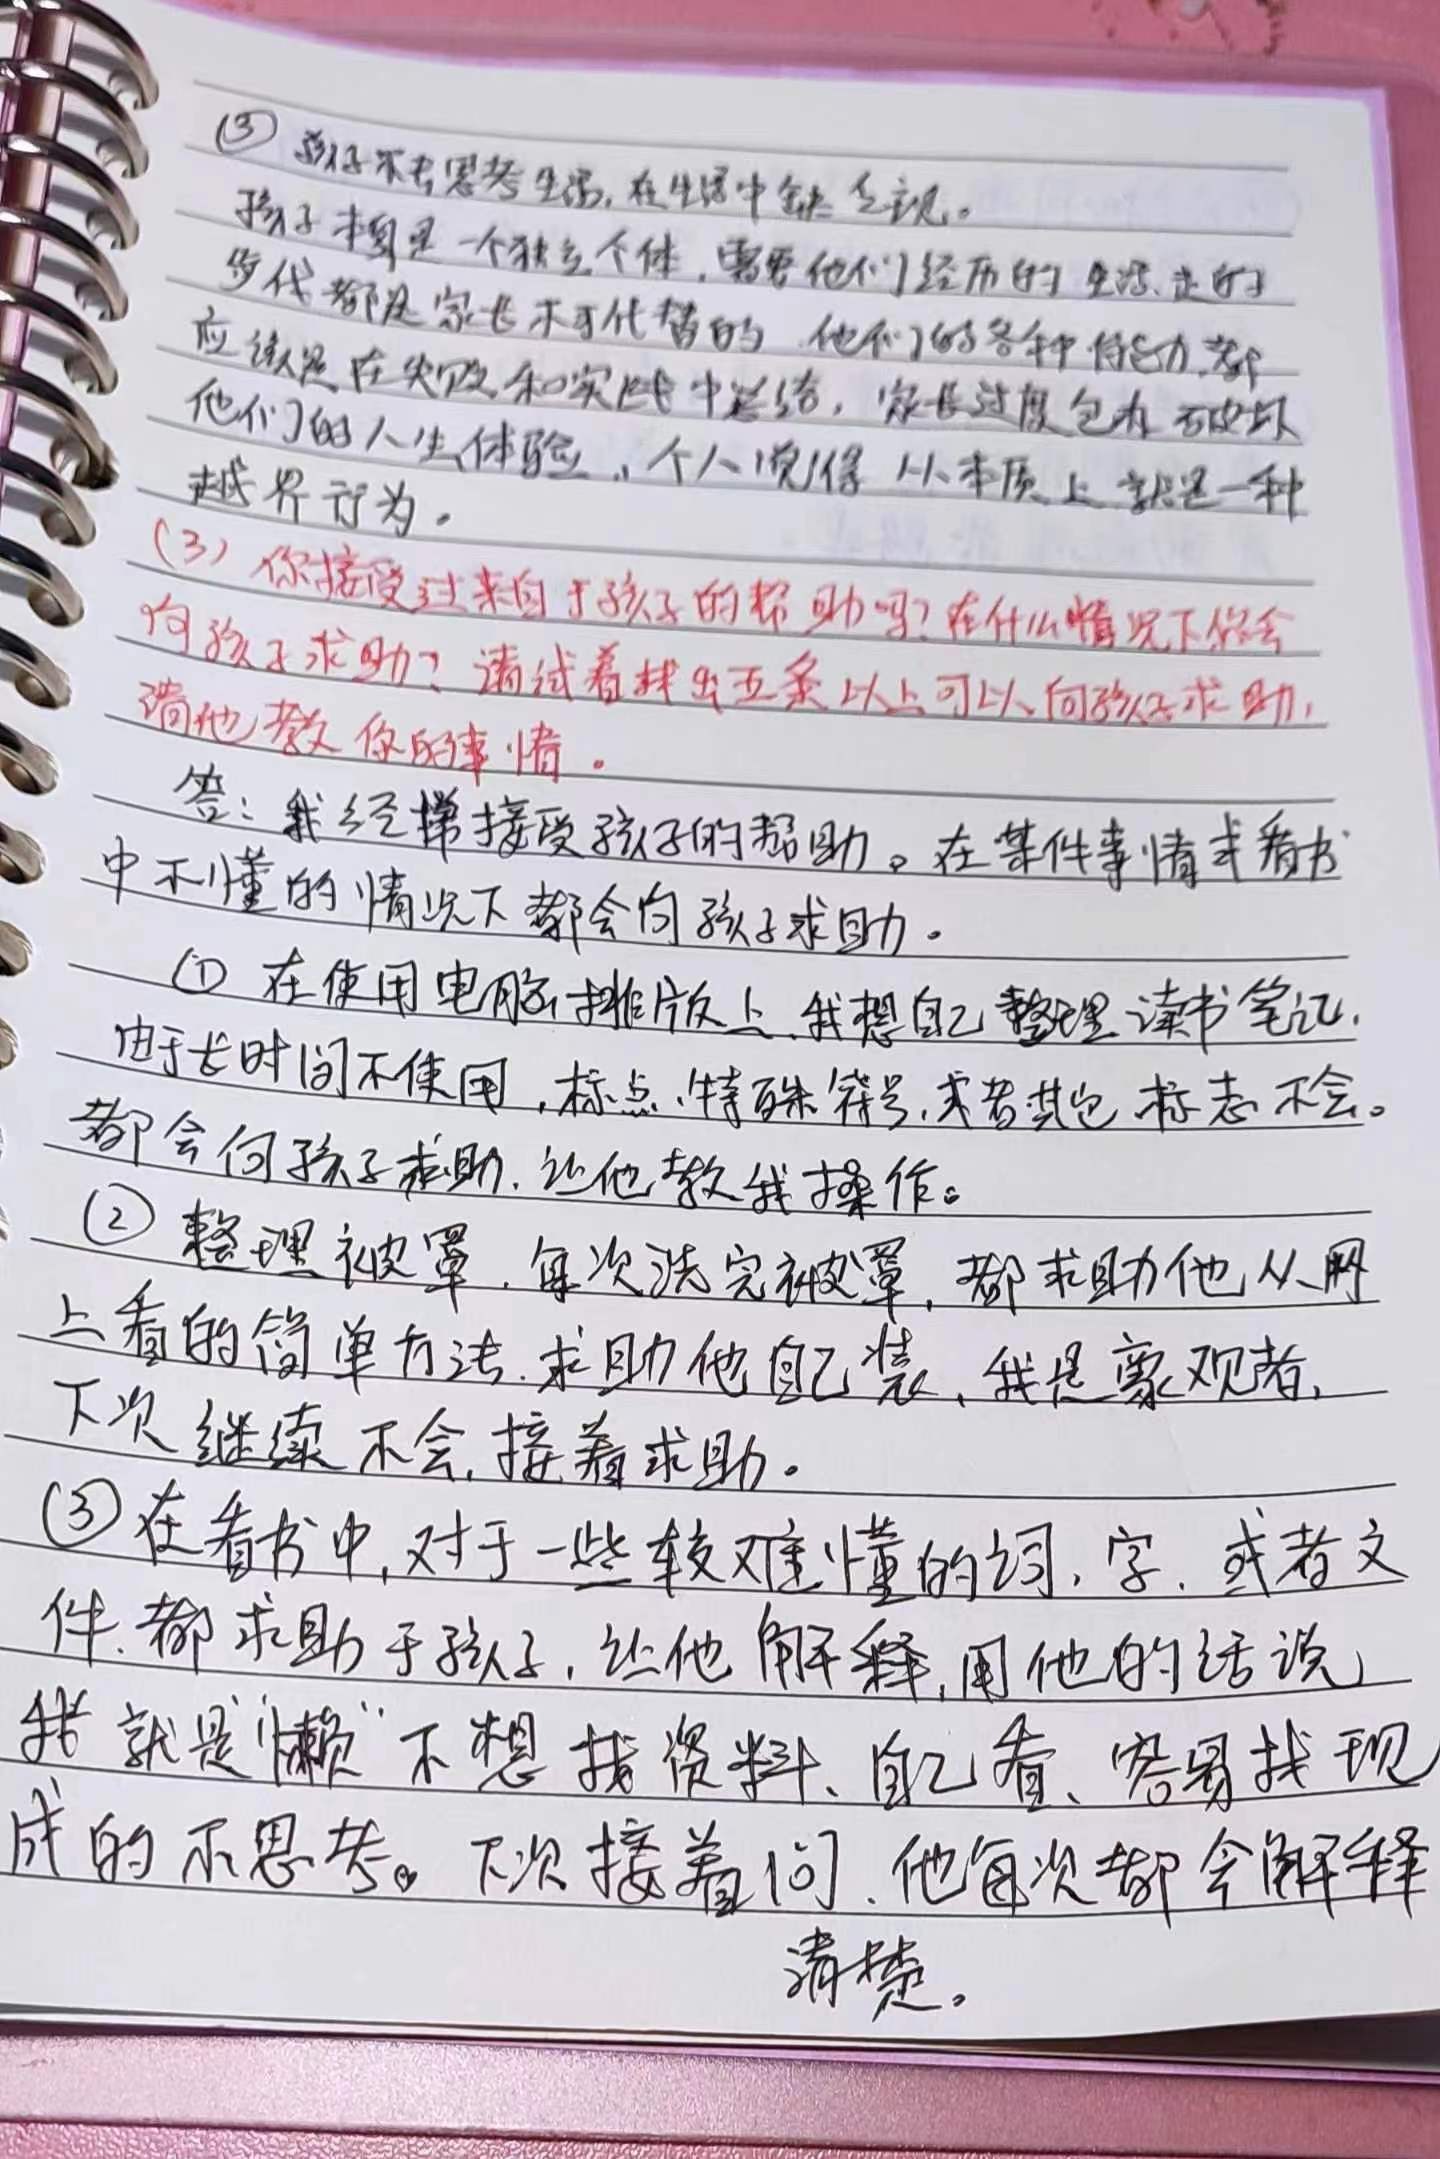 ③ 孩子不去思考生活,在生活中缺乏主观。
孩子本身是一个独立个体,需要他们经历的生活、走的
步伐都是家长不可代替的,他们的各种能力都
应该是在失败和实践中总结,家长过度包办破坏
他们的人生体验,个人觉得从本质上就是一种
越界行为。
(3)你接受过来自于孩子的帮助吗?在什么情况下你会
向孩子求助?请试着找出五条以上可以向孩子求助,
请他教你的事情。
答:我经常接受孩子的帮助。在某件事情或看书
中不懂的情况下都会向孩子求助。
① 在使用电脑排版上,我想自己整理读书笔记,
由于长时间不使用,标点、特殊符号,或者其它标志不会。
都会向孩子求助,让他教我操作。
② 整理被罩,每次洗完被罩,都求助他从网
上看的简单方法,求助他自己装,我是旁观者,
下次继续不会,接着求助。
③ 在看书中,对于一些较难懂的词、字、或者文
件、都求助于孩子,让他解释,用他的话说
我就是"懒"不想找资料、自己看、容易找现
成的不思考。下次接着问、他每次都会解释
清楚。